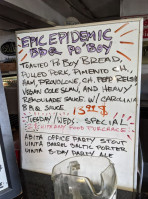 EPIC EPIDEMIC
BBQ PO'BOY
TOASTED PO BOY BREAD,
PULLED PORK, PIMENTO CH,
HAM, PROVOLONE, CH, PEPP RELISH
VEGAN COLE SLAW, AND HEAVY
REMOULADE SAUCE W/ CAROLINA
BBQ SAUCE
TUESDAY/WEDS. SPECIAL
W/ FOOD PURCHASE
ABITA OFFICE PARTY STOUT
UINTA BARREL BALTIC PORTER
UINTA 5-DAY PARTY ALE